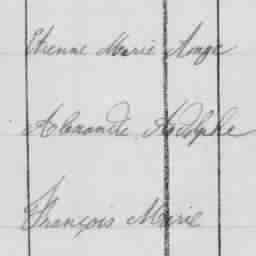 Etienne Marie Ange
Alexandre Adolphe
François Marie